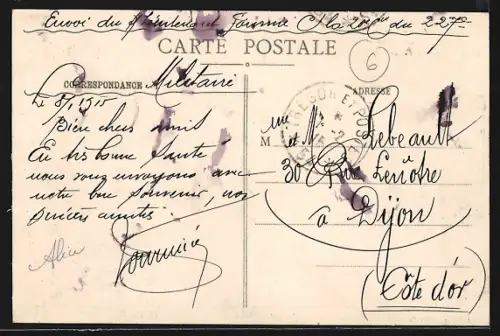 Envoi du Lieutenant Fournié à la 20e du 22e
CARTE POSTALE
6
CORRESPONDANCE Militaire
ADRESSE
TRESOR ET POSTES
Le 1915
Bien chers amis
En très bonne santé
nous vous envoyons avec
notre bon souvenir, nos
sincères amitiés.
Fournié
Alice
M me et M. Lebeault
30 Rue Lenôtre
à Dijon
(Côte d'or)